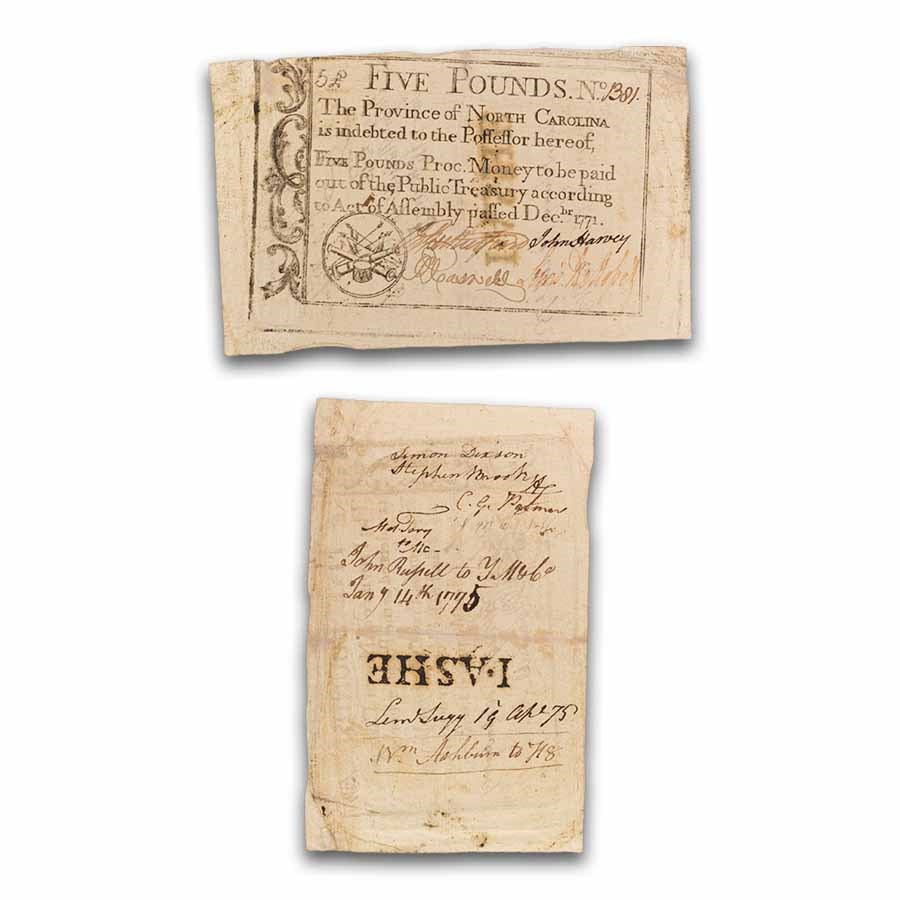 5£ FIVE POUNDS. No. 1381.
The Province of NORTH CAROLINA
is indebted to the Poſſeſſor hereof,
FIVE POUNDS Proc. Money to be paid
out of the Public Treasury according
to Act of Aſſembly paſſed Dec.br 1771.
John Harvey
RCaswell
Simon Dixson
Stephen Brooks
C. G. Palmer
John Ruſsell to
Jany 14th 1775
I·ASHE
Lem.l Sugg 19 Apl. 75
Wm Ashburn to